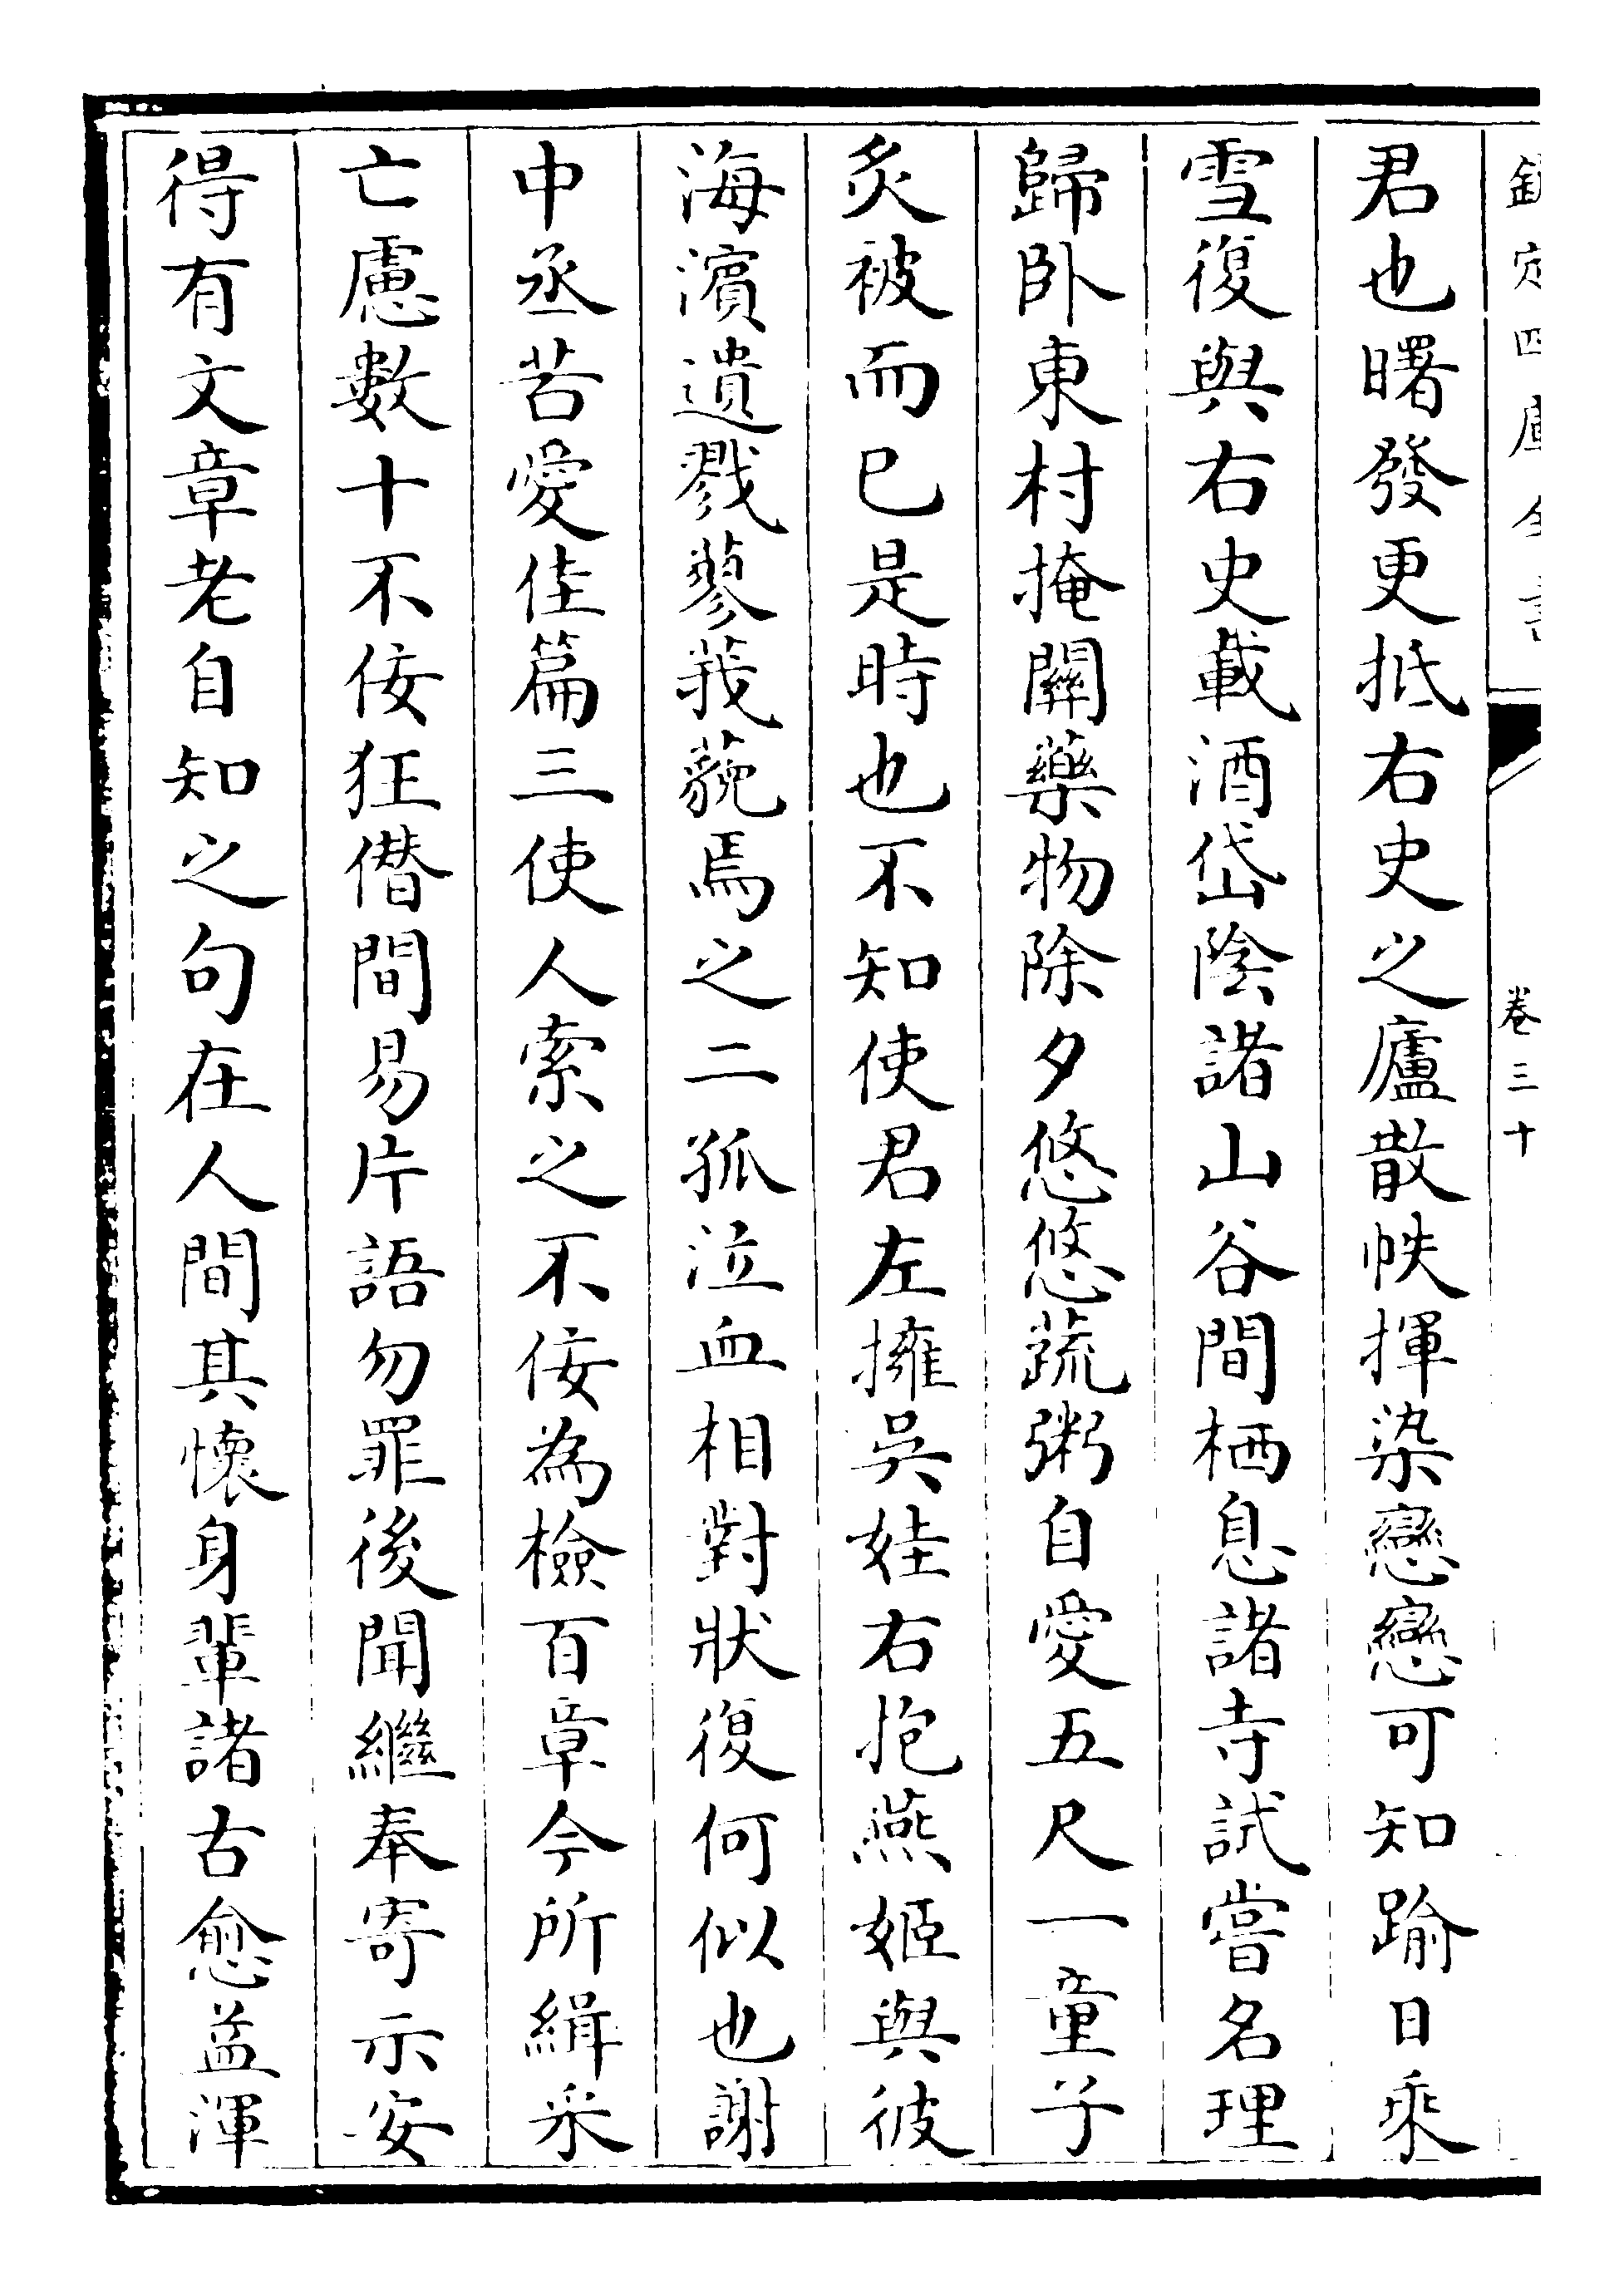 欽定四庫全書 卷三十
君也曙發更抵右史之廬散帙揮染戀戀可知踰日乘
雪復與右史載酒岱陰諸山谷間栖息諸寺試嘗名理
歸卧東村掩關藥物除夕悠悠蔬粥自愛五尺一童子
炙被而已是時也不知使君左擁吳娃右抱燕姬與彼
海濵遺戮蓼莪藐焉之二孤泣血相對狀復何似也謝
中丞苦愛佳篇三使人索之不佞為檢百章今所緝采
亡慮數十不佞狂僭間易片語勿罪後聞繼奉寄示安
得有文章老自知之句在人間其懷身輩諸古愈益渾